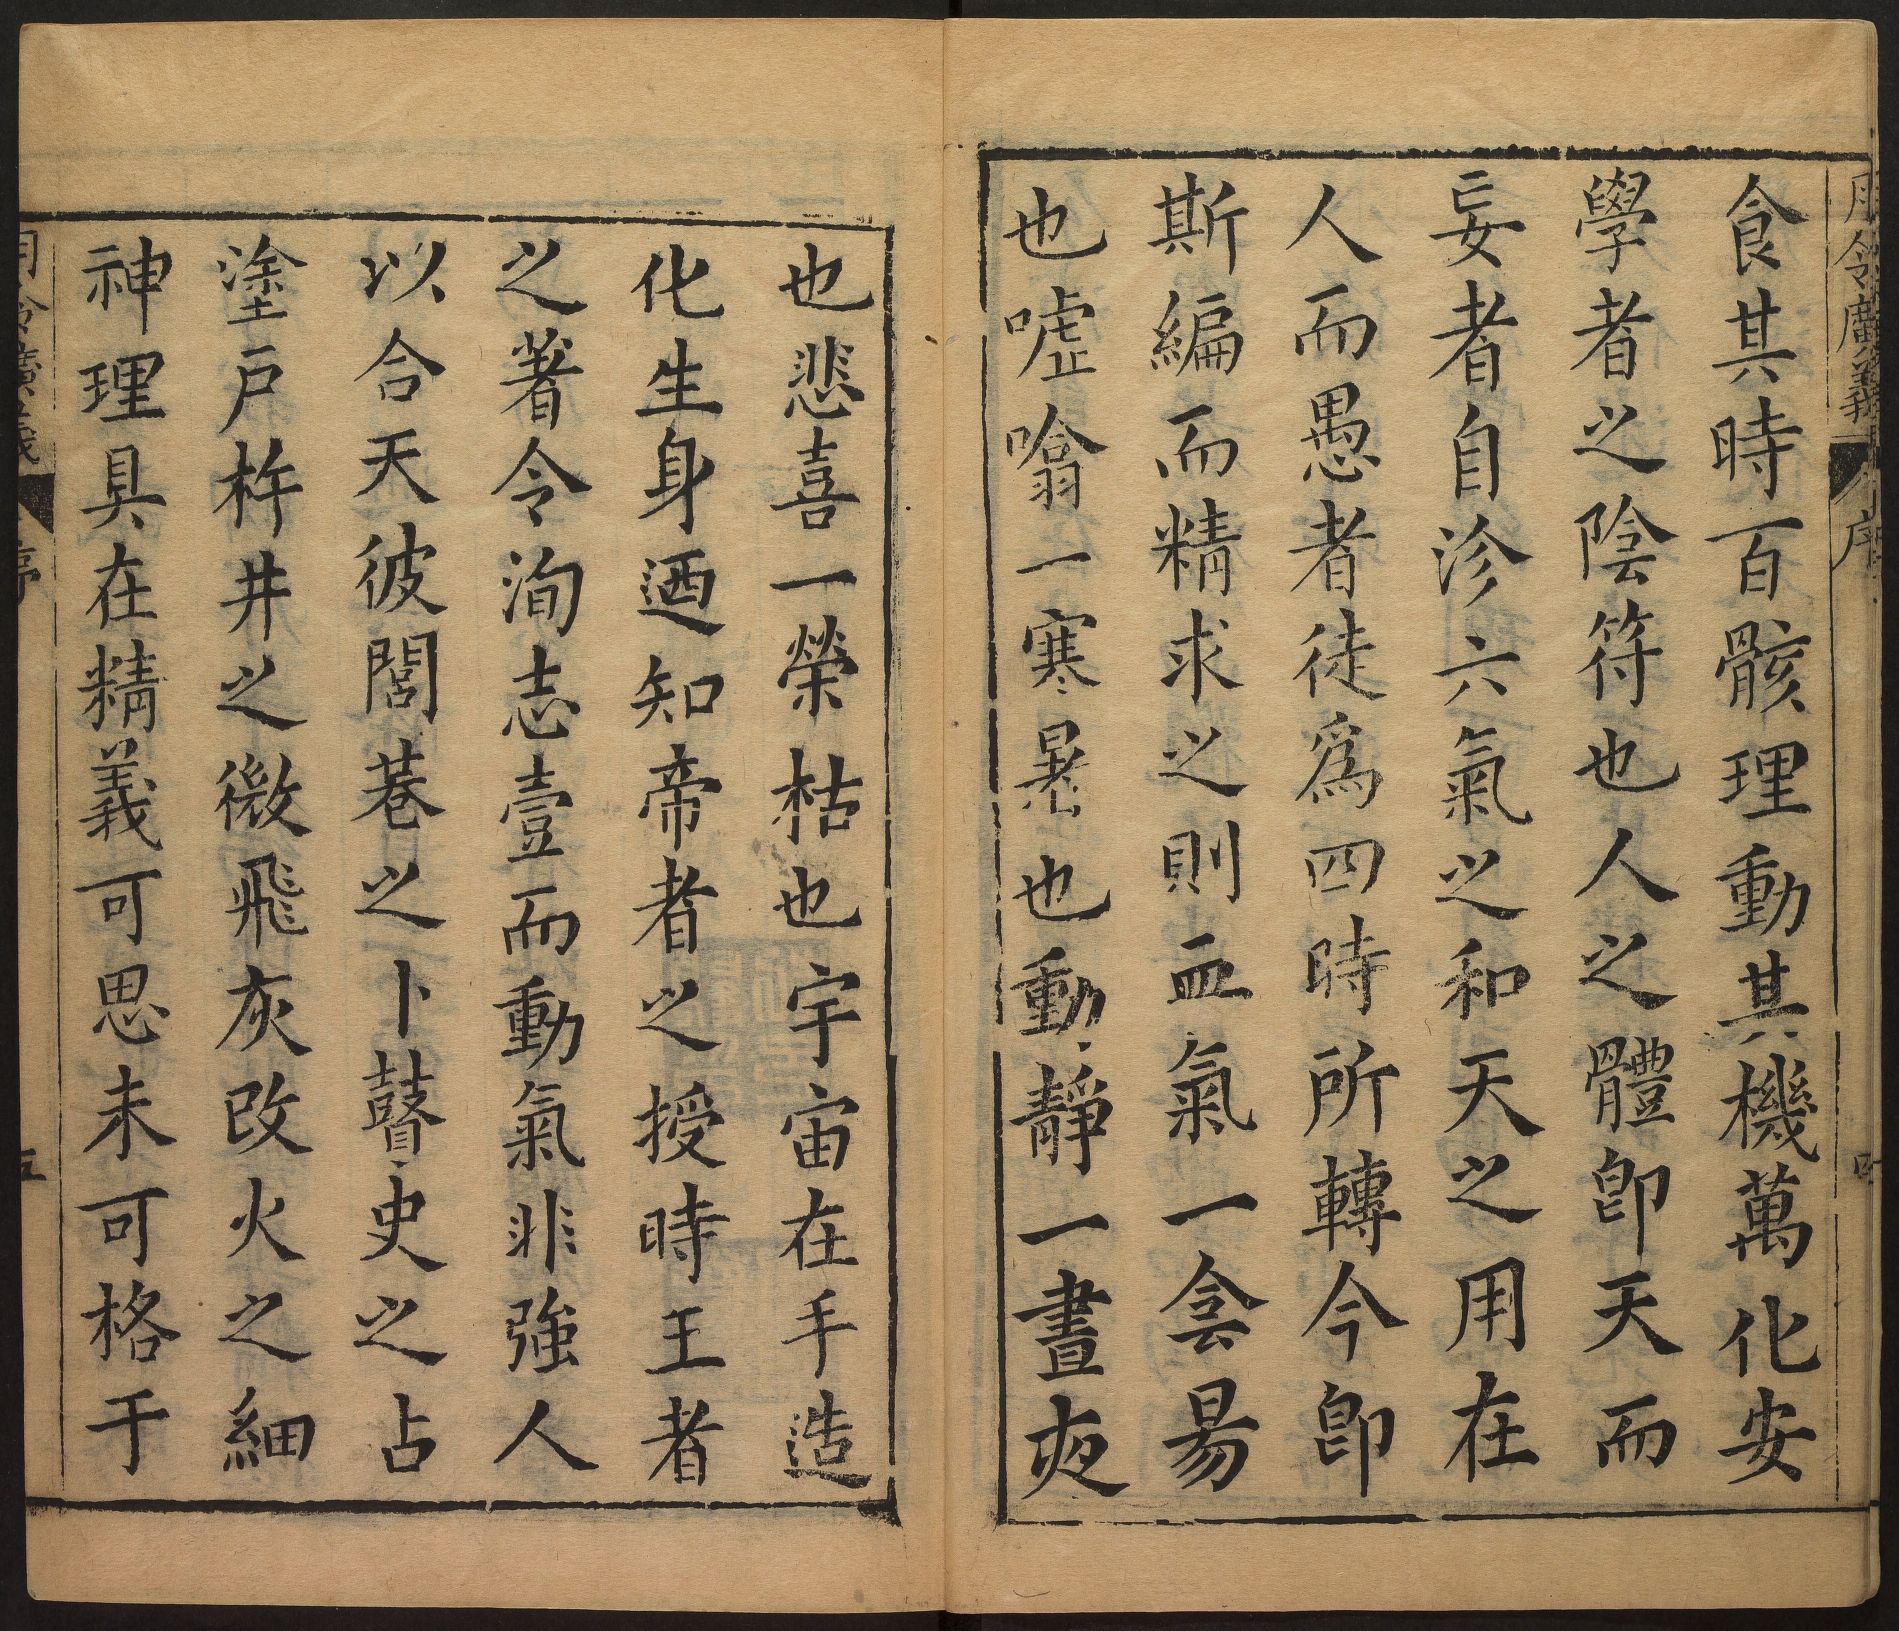 月令廣義 序
食其時百骸理動其機萬化安
學者之陰符也人之體卽天而
妄者自沴六氣之和天之用在
人而愚者徒爲四時所轉今卽
斯編而精求之則血氣一侌昜
也噓噏一寒暑也動靜一晝夜
也悲喜一榮枯也宇宙在手造
化生身迺知帝者之授時王者
之著令洵志壹而動氣非強人
以合天彼閭巷之卜瞽史之占
塗戶杵井之微飛灰改火之細
神理具在精義可思未可格于
月令廣義 序 五